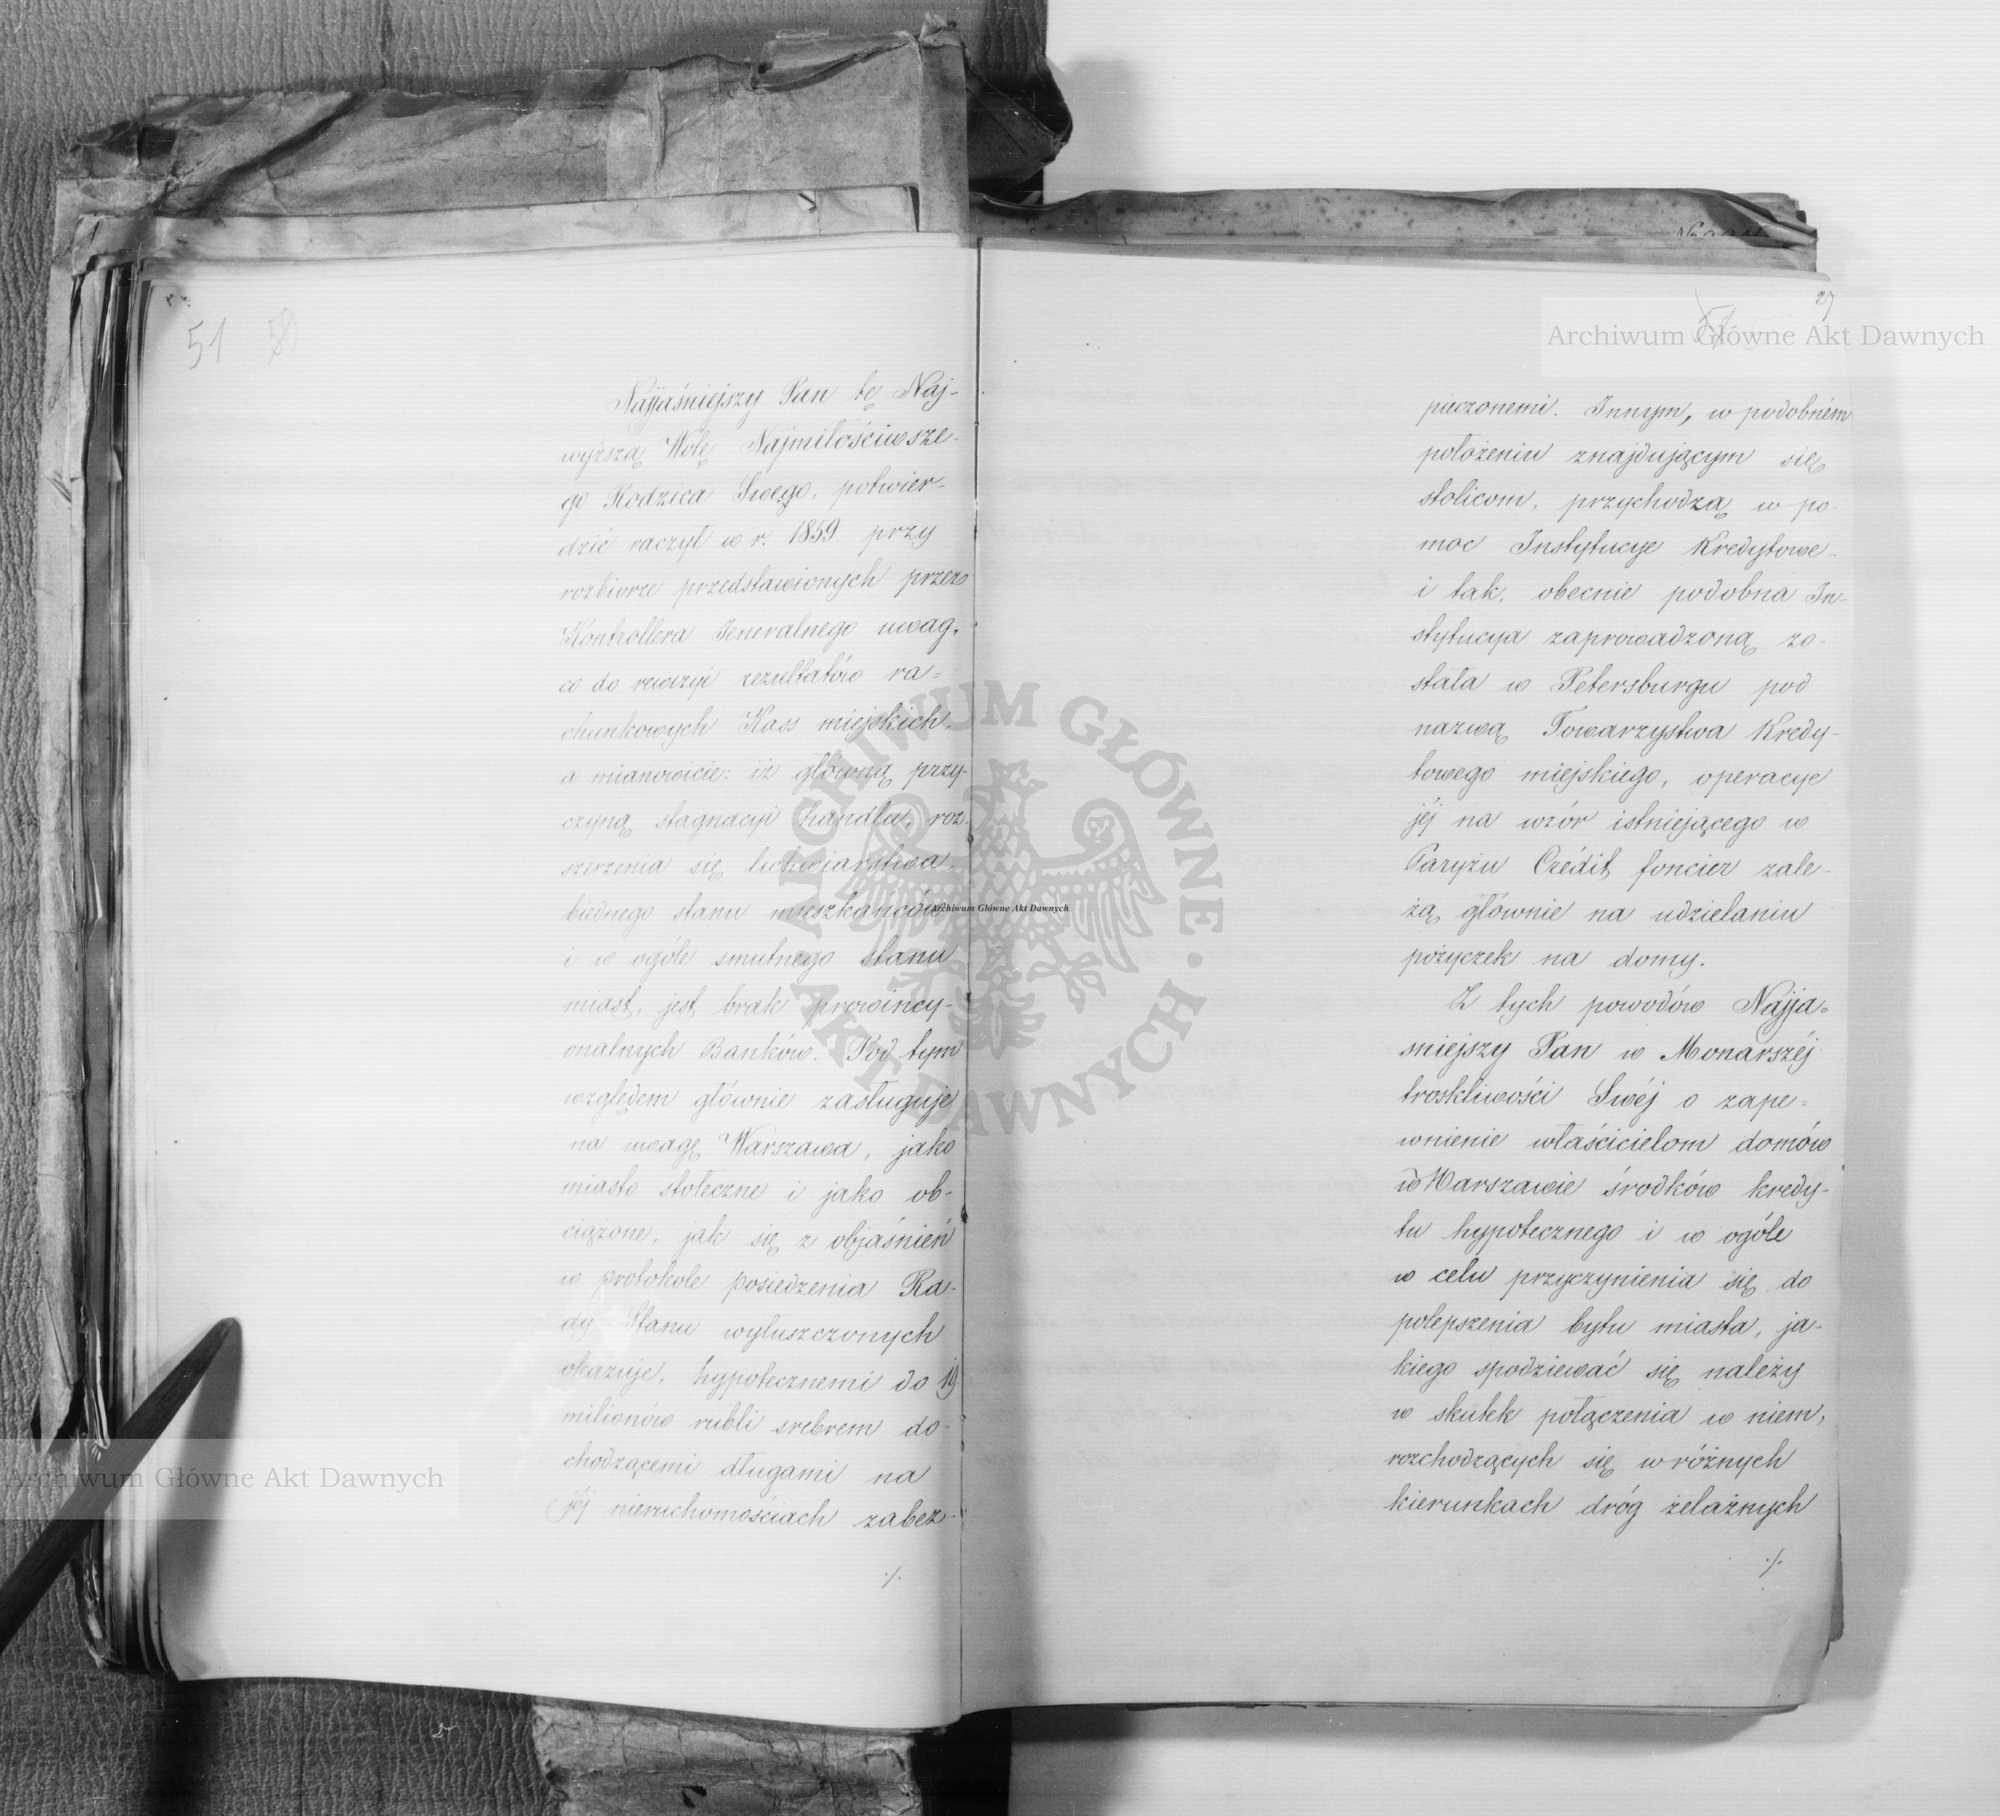 51 50
Najjaśniejszy Pan tę Naj-
wyższą Wolę Najmiłościwsze-
go Rodzica Swego, potwier-
dzić raczył w r. 1859 przy
rozbiorze przedstawionych przez
Kontrollera Jeneralnego uwag,
co do rewizyi rezultatów ra=
chunkowych Kass miejskich,
a mianowicie: iż główną przy-
czyną stagnacyi handlu, roz-
szerzenia się lichwiarstwa,
biednego stanu mieszkańców
i w ogóle smutnego stanu
miast, jest brak prowincy-
onalnych Banków. Pod tym
względem głównie zasługuje
na uwagę Warszawa, jako
miasto stołeczne i jako ob-
ciążone, jak się z objaśnień
w protokole posiedzenia Ra-
dy Stanu wyłuszczonych
okazuje, hypotecznemi do 19
milionów rubli srebrem do-
chodzącemi długami na
jéj nieruchomościach zabez-
./.
27
51
pieczonemi. Innym, w podobném
położeniu znajdującym się
stolicom, przychodzą w po-
moc Instytucye Kredytowe
i tak, obecnie podobna In-
stytucya zaprowadzoną zo-
stała w Petersburgu pod
nazwą Towarzystwa Kredy-
towego miejskiego, operacye
jéj na wzór istniejącego w
Paryżu Crédit foncier zale-
żą głównie na udzielaniu
pożyczek na domy.
Z tych powodów Najja=
śniejszy Pan w Monarszéj
troskliwości Swéj o zape=
wnienie właścicielom domów
w Warszawie środków kredy-
tu hypotecznego i w ogóle
w celu przyczynienia się do
polepszenia bytu miasta, ja-
kiego spodziewać się należy
w skutek połączenia w niem,
rozchodzących się w różnych
kierunkach dróg żelaznych
./.
Archiwum Główne Akt Dawnych
Archiwum Główne Akt Dawnych
Archiwum Główne Akt Dawnych
ARCHIWUM GŁÓWNE · AKT DAWNYCH ·